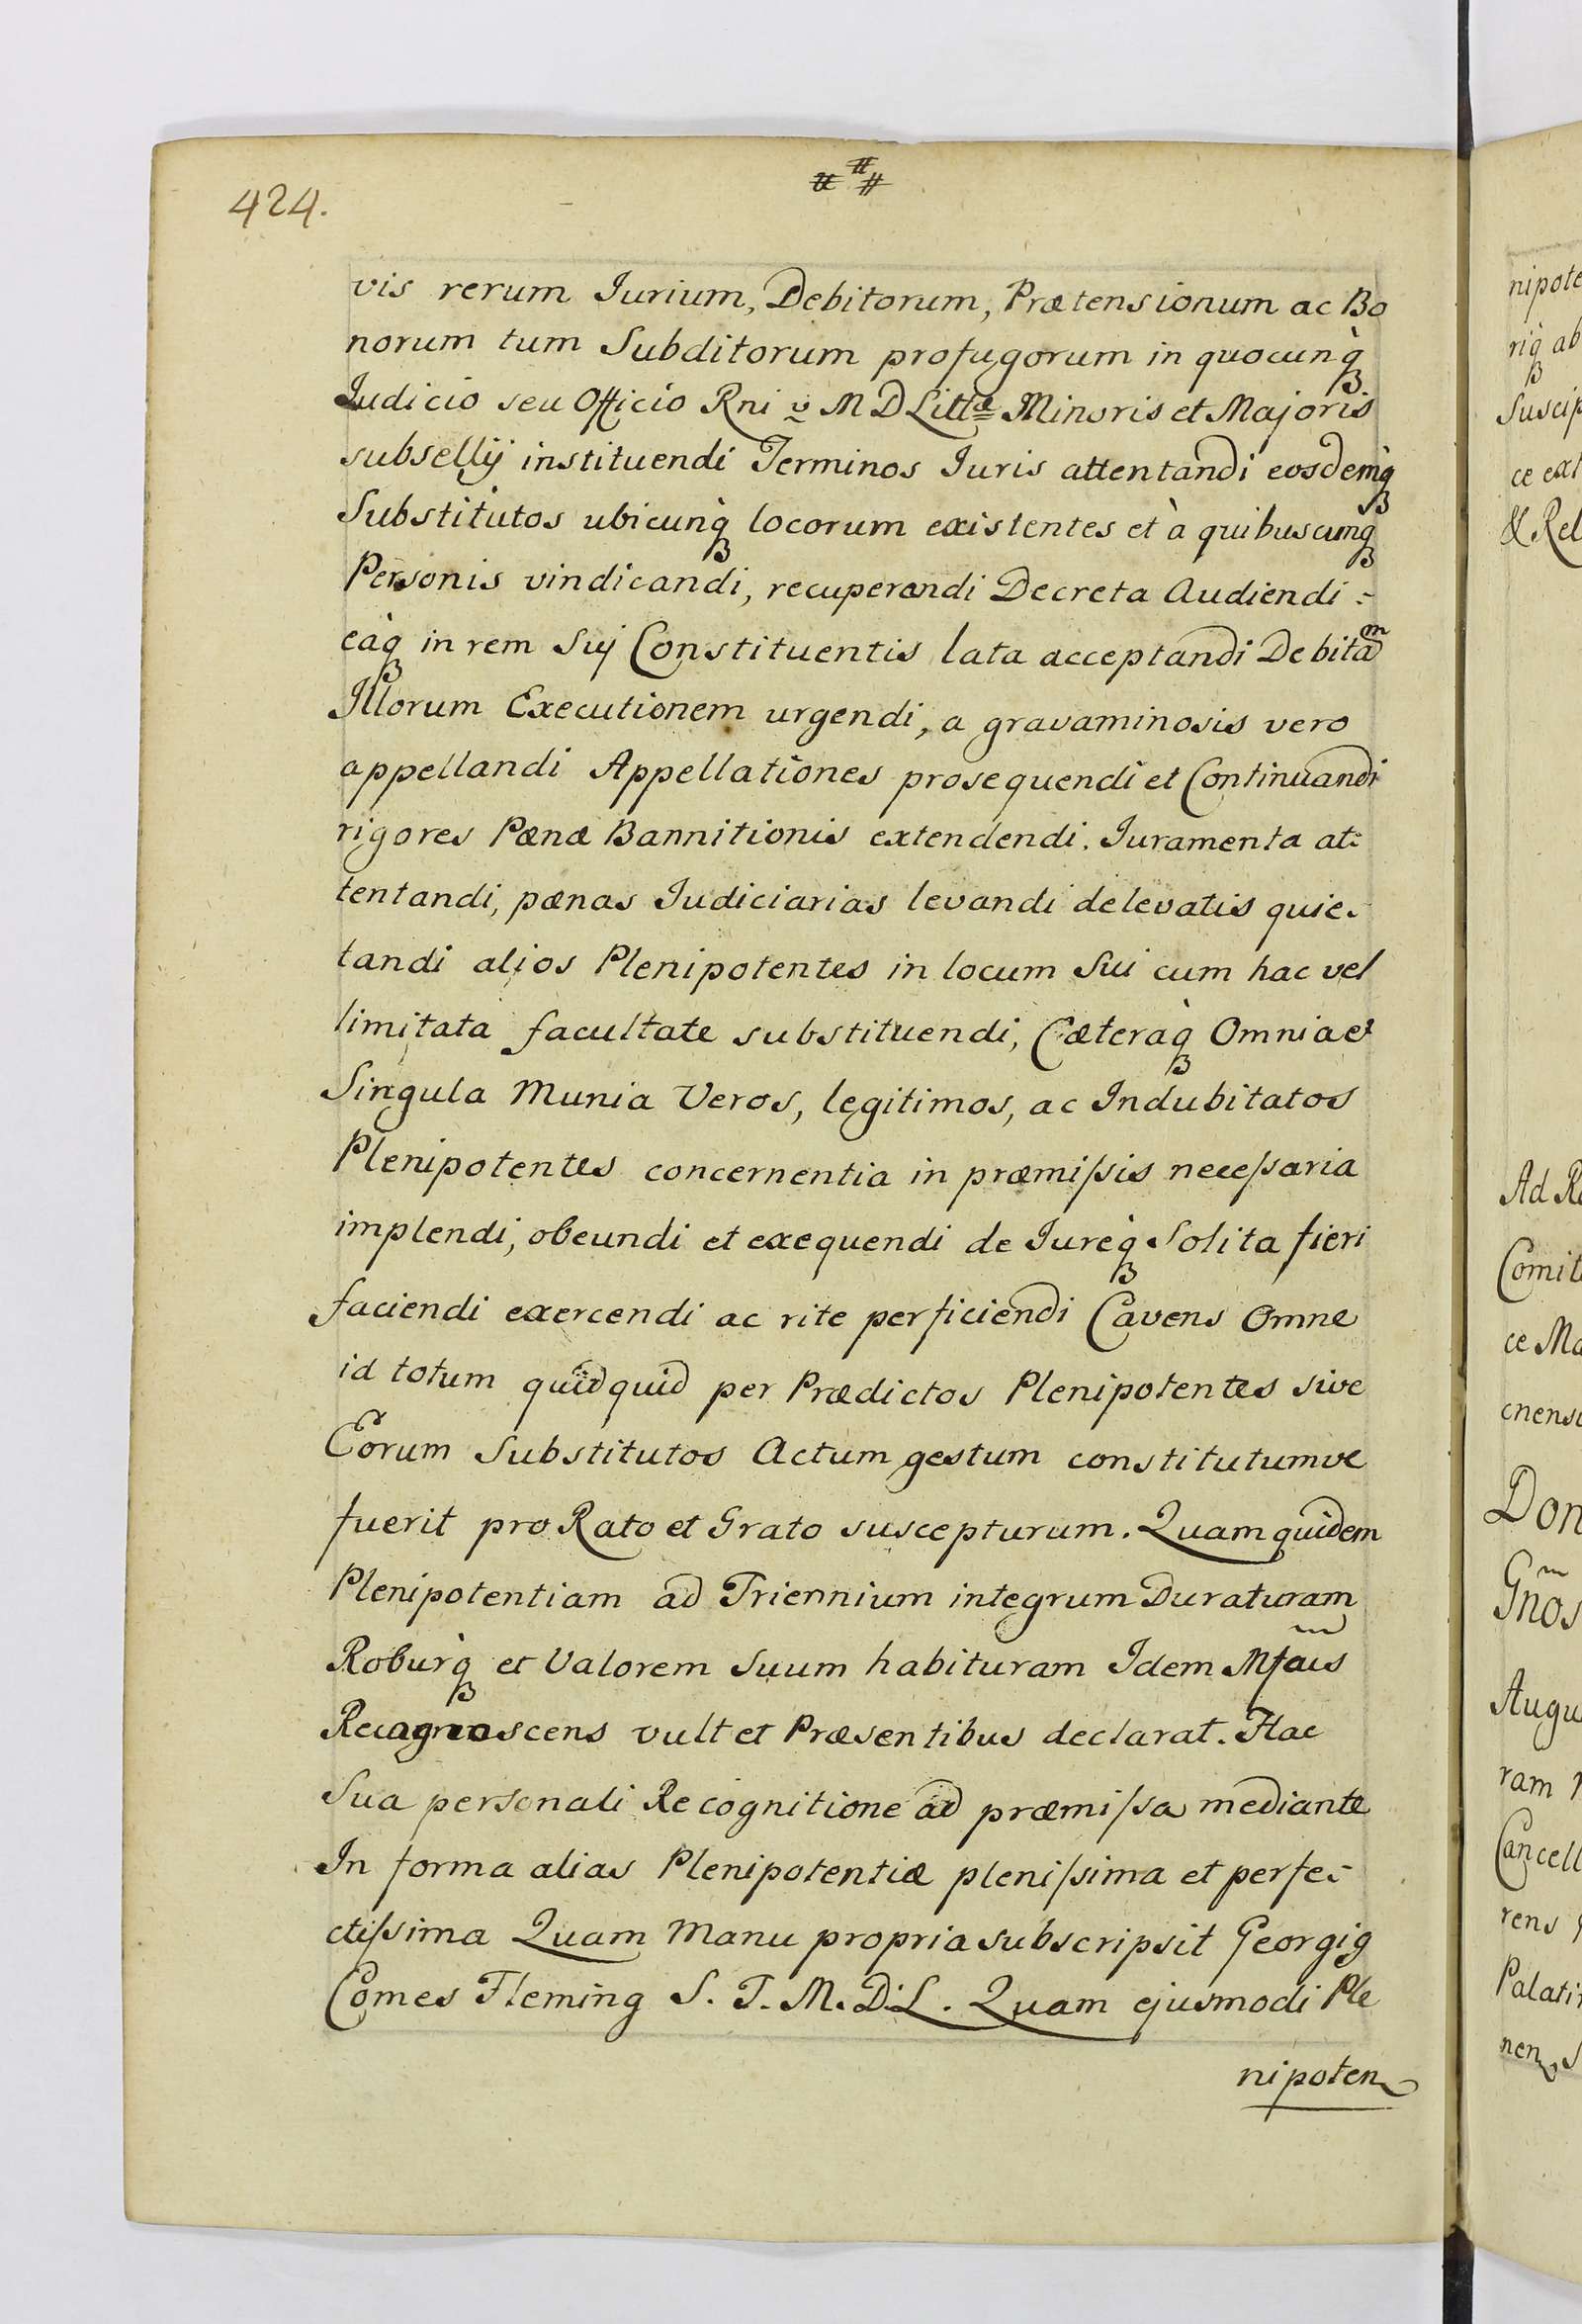 424.
vis rerum Iurium, Debitorum, Prætensionum ac Bo
norum tum Subditorum profugorum in quocunq̀ꝫ
Iudicio seu Officio Rni v M D Littæ Minoris et Majoris
subsellij instituendi Terminos Iuris attentandi eosdemq̀ꝫ
Substitutos ubicunq̀ꝫ locorum existentes et à quibuscunqꝫ
Personis vindicandi, recuperandi Decreta Audiendi =
eàqꝫ in rem Suj Constituentis lata acceptandi Debitam
Illorum Executionem urgendi, a gravaminosis vero
appellandi Appellationes prosequendi et Continuandi
rigores Pænæ Bannitionis extendendi. Iuramenta at=
tentandi, pænas Iudiciarias levandi de levatis quie-
tandi alios Plenipotentes in locum Sui cum hac vel
limitata facultate substituendi, Cæteraq̀ꝫ Omnia et
Singula Munia Veros, legitimos, ac Indubitatos
Plenipotentes concernentia in præmiſsis neceſsaria
implendi, obeundi et exequendi de Iureq̀ꝫ Solita fieri
faciendi exercendi ac rite perficiendi Cavens Omne
id totum quidquid per Prædictos Plenipotentes sive
Eorum Substitutos Actum gestum constitutumve
fuerit pro Rato et Grato suscepturum. Quam quidem
Plenipotentiam ad Triennium integrum Duraturam
Roburq̀ꝫ et Valorem Suum habituram Idem Mfcus
Recognoscens vult et Præsentibus declarat. Hac
Sua personali Recognitione ad præmiſsa mediante
In forma alias Plenipotentiæ pleniſsima et perfe-
ctiſsima Quam Manu propria subscripsit Georgig
Comes Fleming S. T. M. D. L. Quam ejusmodi Ple
nipoten
nipote
riqꝫ ab
Suscip
ce ext
& Rel
Ad R
Comit
ce Ma
cnens
Don
Gnos
Augu
ram
Cancell
rens
Palati
nen